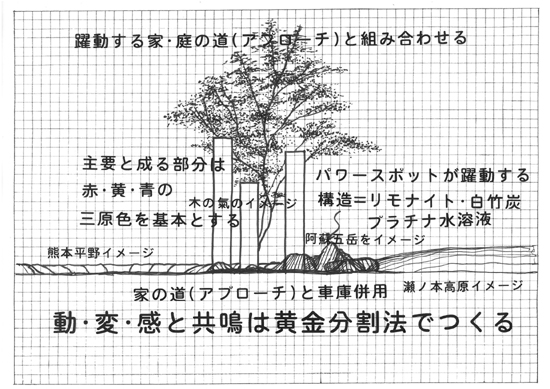 躍動する家・庭の道(アプローチ)と組み合わせる
主要と成る部分は
赤・黄・青の
三原色を基本とする
木の氣のイメージ
パワースポットが躍動する
構造=リモナイト・白竹炭
プラチナ水溶液
阿蘇五岳をイメージ
熊本平野イメージ
瀬ノ本高原イメージ
家の道(アプローチ)と車庫併用
動・変・感と共鳴は黄金分割法でつくる